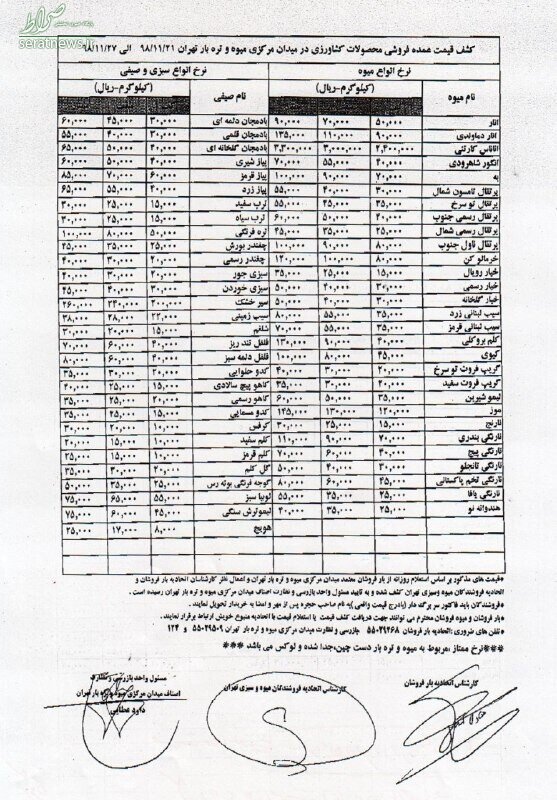 صراط
پایگاه خبری تحلیلی
seratnews.ir
کشف قیمت عمده فروشی محصولات کشاورزی در میدان مرکزی میوه و تره بار تهران ۹۸/۱۱/۲۱ الی ۹۸/۱۱/۲۷
نرخ انواع میوه نرخ انواع سبزی و صیفی
نام میوه (کیلوگرم-ریال) نام صیفی (کیلوگرم-ریال)
انار ۵۰,۰۰۰ ۷۰,۰۰۰ ۹۰,۰۰۰ بادمجان دلمه ای ۳۰,۰۰۰ ۴۵,۰۰۰ ۶۰,۰۰۰
انار دماوندی ۹۰,۰۰۰ ۱۱۰,۰۰۰ ۱۳۵,۰۰۰ بادمجان قلمی ۳۰,۰۰۰ ۴۰,۰۰۰ ۵۵,۰۰۰
آناناس کارتنی ۲,۴۰۰,۰۰۰ ۳,۰۰۰,۰۰۰ ۳,۳۰۰,۰۰۰ بادمجان گلخانه ای ۴۰,۰۰۰ ۵۰,۰۰۰ ۶۵,۰۰۰
انگور شاهرودی ۴۰,۰۰۰ ۵۵,۰۰۰ ۷۰,۰۰۰ پیاز شیری ۴۰,۰۰۰ ۵۰,۰۰۰ ۶۰,۰۰۰
به ۷۰,۰۰۰ ۹۰,۰۰۰ ۱۰۰,۰۰۰ پیاز قرمز ۶۰,۰۰۰ ۷۰,۰۰۰ ۸۵,۰۰۰
پرتقال تامسون شمال ۳۰,۰۰۰ ۴۰,۰۰۰ ۵۵,۰۰۰ پیاز زرد ۴۰,۰۰۰ ۵۵,۰۰۰ ۶۵,۰۰۰
پرتقال تو سرخ ۳۵,۰۰۰ ۴۵,۰۰۰ ۵۵,۰۰۰ ترب سفید ۱۵,۰۰۰ ۲۰,۰۰۰ ۳۰,۰۰۰
پرتقال رسمی جنوب ۴۰,۰۰۰ ۵۰,۰۰۰ ۶۰,۰۰۰ ترب سیاه ۱۵,۰۰۰ ۲۰,۰۰۰ ۳۰,۰۰۰
پرتقال رسمی شمال ۲۵,۰۰۰ ۳۵,۰۰۰ ۴۵,۰۰۰ تره فرنگی ۵۰,۰۰۰ ۸۰,۰۰۰ ۱۰۰,۰۰۰
پرتقال ناول جنوب ۸۰,۰۰۰ ۹۰,۰۰۰ ۱۰۰,۰۰۰ چغندر بورش ۲۵,۰۰۰ ۳۵,۰۰۰ ۴۵,۰۰۰
خرمالو کن ۸۰,۰۰۰ ۱۰۰,۰۰۰ ۱۲۰,۰۰۰ چغندر رسمی ۲۰,۰۰۰ ۳۰,۰۰۰ ۴۰,۰۰۰
خیار رویال ۱۵,۰۰۰ ۲۵,۰۰۰ ۳۵,۰۰۰ سبزی جور ۲۰,۰۰۰ ۳۰,۰۰۰ ۴۰,۰۰۰
خیار رسمی ۳۰,۰۰۰ ۴۰,۰۰۰ ۵۰,۰۰۰ سبزی خوردن ۳۰,۰۰۰ ۴۰,۰۰۰ ۴۵,۰۰۰
خیار گلخانه ۳۰,۰۰۰ ۴۰,۰۰۰ ۵۰,۰۰۰ سیر خشک ۲۰۰,۰۰۰ ۲۴۰,۰۰۰ ۲۶۰,۰۰۰
سیب لبنانی زرد ۳۵,۰۰۰ ۵۵,۰۰۰ ۸۰,۰۰۰ سیب زمینی ۲۲,۰۰۰ ۲۸,۰۰۰ ۳۸,۰۰۰
سیب لبنانی قرمز ۳۵,۰۰۰ ۵۵,۰۰۰ ۷۰,۰۰۰ شلغم ۱۵,۰۰۰ ۲۰,۰۰۰ ۳۰,۰۰۰
کلم بروکلی ۴۰,۰۰۰ ۹۰,۰۰۰ ۱۳۰,۰۰۰ فلفل تند ریز ۴۰,۰۰۰ ۶۰,۰۰۰ ۷۰,۰۰۰
کیوی ۴۵,۰۰۰ ۸۰,۰۰۰ ۱۰۰,۰۰۰ فلفل دلمه سبز ۴۰,۰۰۰ ۶۰,۰۰۰ ۸۰,۰۰۰
گریپ فروت تو سرخ ۲۰,۰۰۰ ۳۰,۰۰۰ ۴۰,۰۰۰ کدو حلوایی ۲۰,۰۰۰ ۳۰,۰۰۰ ۴۰,۰۰۰
گریپ فروت سفید ۲۰,۰۰۰ ۳۰,۰۰۰ ۳۵,۰۰۰ کاهو پیچ سالادی ۱۵,۰۰۰ ۲۵,۰۰۰ ۴۰,۰۰۰
لیمو شیرین ۳۵,۰۰۰ ۵۰,۰۰۰ ۶۰,۰۰۰ کاهو رسمی ۲۰,۰۰۰ ۲۵,۰۰۰ ۳۵,۰۰۰
موز ۱۲۰,۰۰۰ ۱۳۰,۰۰۰ ۱۴۵,۰۰۰ کدو مسمایی ۱۵,۰۰۰ ۲۵,۰۰۰ ۳۵,۰۰۰
نارنج ۱۵,۰۰۰ ۲۵,۰۰۰ ۳۰,۰۰۰ کرفس ۱۰,۰۰۰ ۲۰,۰۰۰ ۳۰,۰۰۰
نارنگی بندری ۷۰,۰۰۰ ۹۰,۰۰۰ ۱۱۰,۰۰۰ کلم سفید ۱۰,۰۰۰ ۱۵,۰۰۰ ۲۰,۰۰۰
نارنگی پیج ۴۰,۰۰۰ ۶۰,۰۰۰ ۷۰,۰۰۰ کلم قرمز ۱۰,۰۰۰ ۱۵,۰۰۰ ۲۰,۰۰۰
نارنگی تانجلو ۳۰,۰۰۰ ۴۰,۰۰۰ ۵۰,۰۰۰ گل کلم ۲۰,۰۰۰ ۳۰,۰۰۰ ۳۵,۰۰۰
نارنگی تخم پاکستانی ۴۵,۰۰۰ ۶۰,۰۰۰ ۸۰,۰۰۰ گوجه فرنگی بوته رس ۲۵,۰۰۰ ۳۵,۰۰۰ ۵۰,۰۰۰
نارنگی یافا ۲۵,۰۰۰ ۳۵,۰۰۰ ۵۵,۰۰۰ لوبیا سبز ۵۵,۰۰۰ ۶۵,۰۰۰ ۷۵,۰۰۰
هندوانه نو ۲۵,۰۰۰ ۳۵,۰۰۰ ۴۰,۰۰۰ لیموترش سنگی ۴۵,۰۰۰ ۶۰,۰۰۰ ۷۵,۰۰۰
هویج ۸,۰۰۰ ۱۷,۰۰۰ ۲۵,۰۰۰
*قیمت های مذکور بر اساس استعلام روزانه از بار فروشان معتمد میدان مرکزی میوه و تره بار تهران و اعمال نظر کارشناسان اتحادیه بار فروشان و
اتحادیه فروشندگان میوه وسبزی تهران کشف شده و به تایید مسئول واحد بازرسی و نظارت اصناف میدان مرکزی میوه و تره بار تهران رسیده است .
*فروشندگان باید فاکتور سر برگه دار (بادرج قیمت واقعی )به نام صاحب حجره پس از مهر و امضا به خریدار تحویل نمایند .
*بار فروشان و میوه فروشان محترم می توانند جهت دریافت کشف قیمت یا استعلام قیمت با اتحادیه متبوع خویش ارتباط برقرار نمایند .
*تلفن های ضروری : اتحادیه بار فروشان ۵۵۰۲۹۴۶۸ بازرسی و نظارت میدان مرکزی میوه و تره بار تهران ۵۵۰۲۹۵۰۹ و ۱۲۴
***نرخ ممتاز ،مربوط به میوه و تره بار دست چین،جدا شده و لوکس می باشد ***
کارشناس اتحادیه بار فروشان
کارشناس اتحادیه فروشندگان میوه و سبزی تهران
مسئول واحد بازرسی و نظارت
اصناف میدان مرکزی میوه و تره بار تهران
داود عطایی